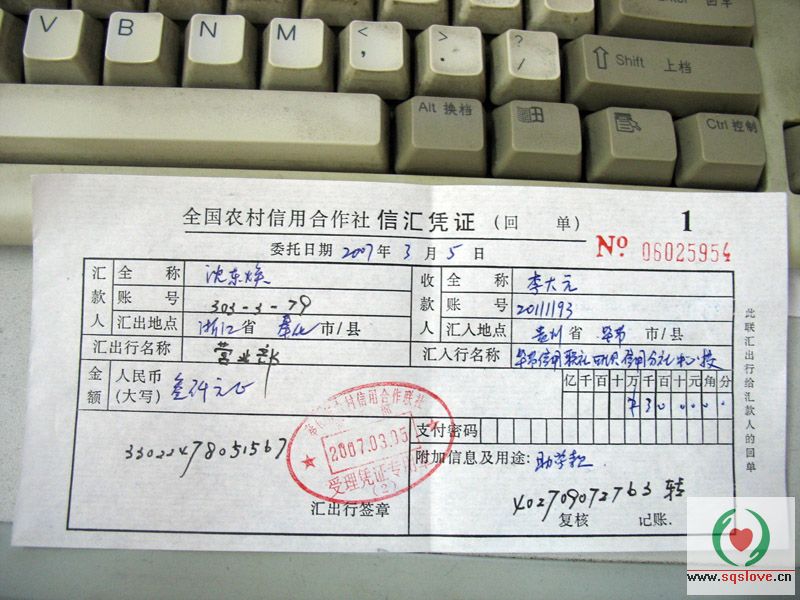 V B N M < , > . ? / ⇧ Shift 上档
Enter 回车
Alt 换档 Ctrl 控制
全国农村信用合作社 信汇凭证 (回 单) 1
委托日期 2007年 3 月 5 日 No 06025954
汇款人 全 称 沈东焕 收款人 全 称 李大元
账 号 303-3-79 账 号 20111193
汇出地点 浙江 省 奉化 市/县 汇入地点 贵州 省 毕节 市/县
汇出行名称 营业部 汇入行名称 毕节信用联社 信用分社
金额 人民币(大写) 叁仟元正 亿 千 百 十 万 千 百 十 元 角 分
¥ 3 0 0 0 0 0
村信用合作联社
2007.03.05
受理凭证专用章
(2)
支付密码
附加信息及用途: 助学款
3302247805156?
402709072763 转
汇出行签章 复核 记账.
此联汇出行给汇款人的回单
www.sqslove.cn